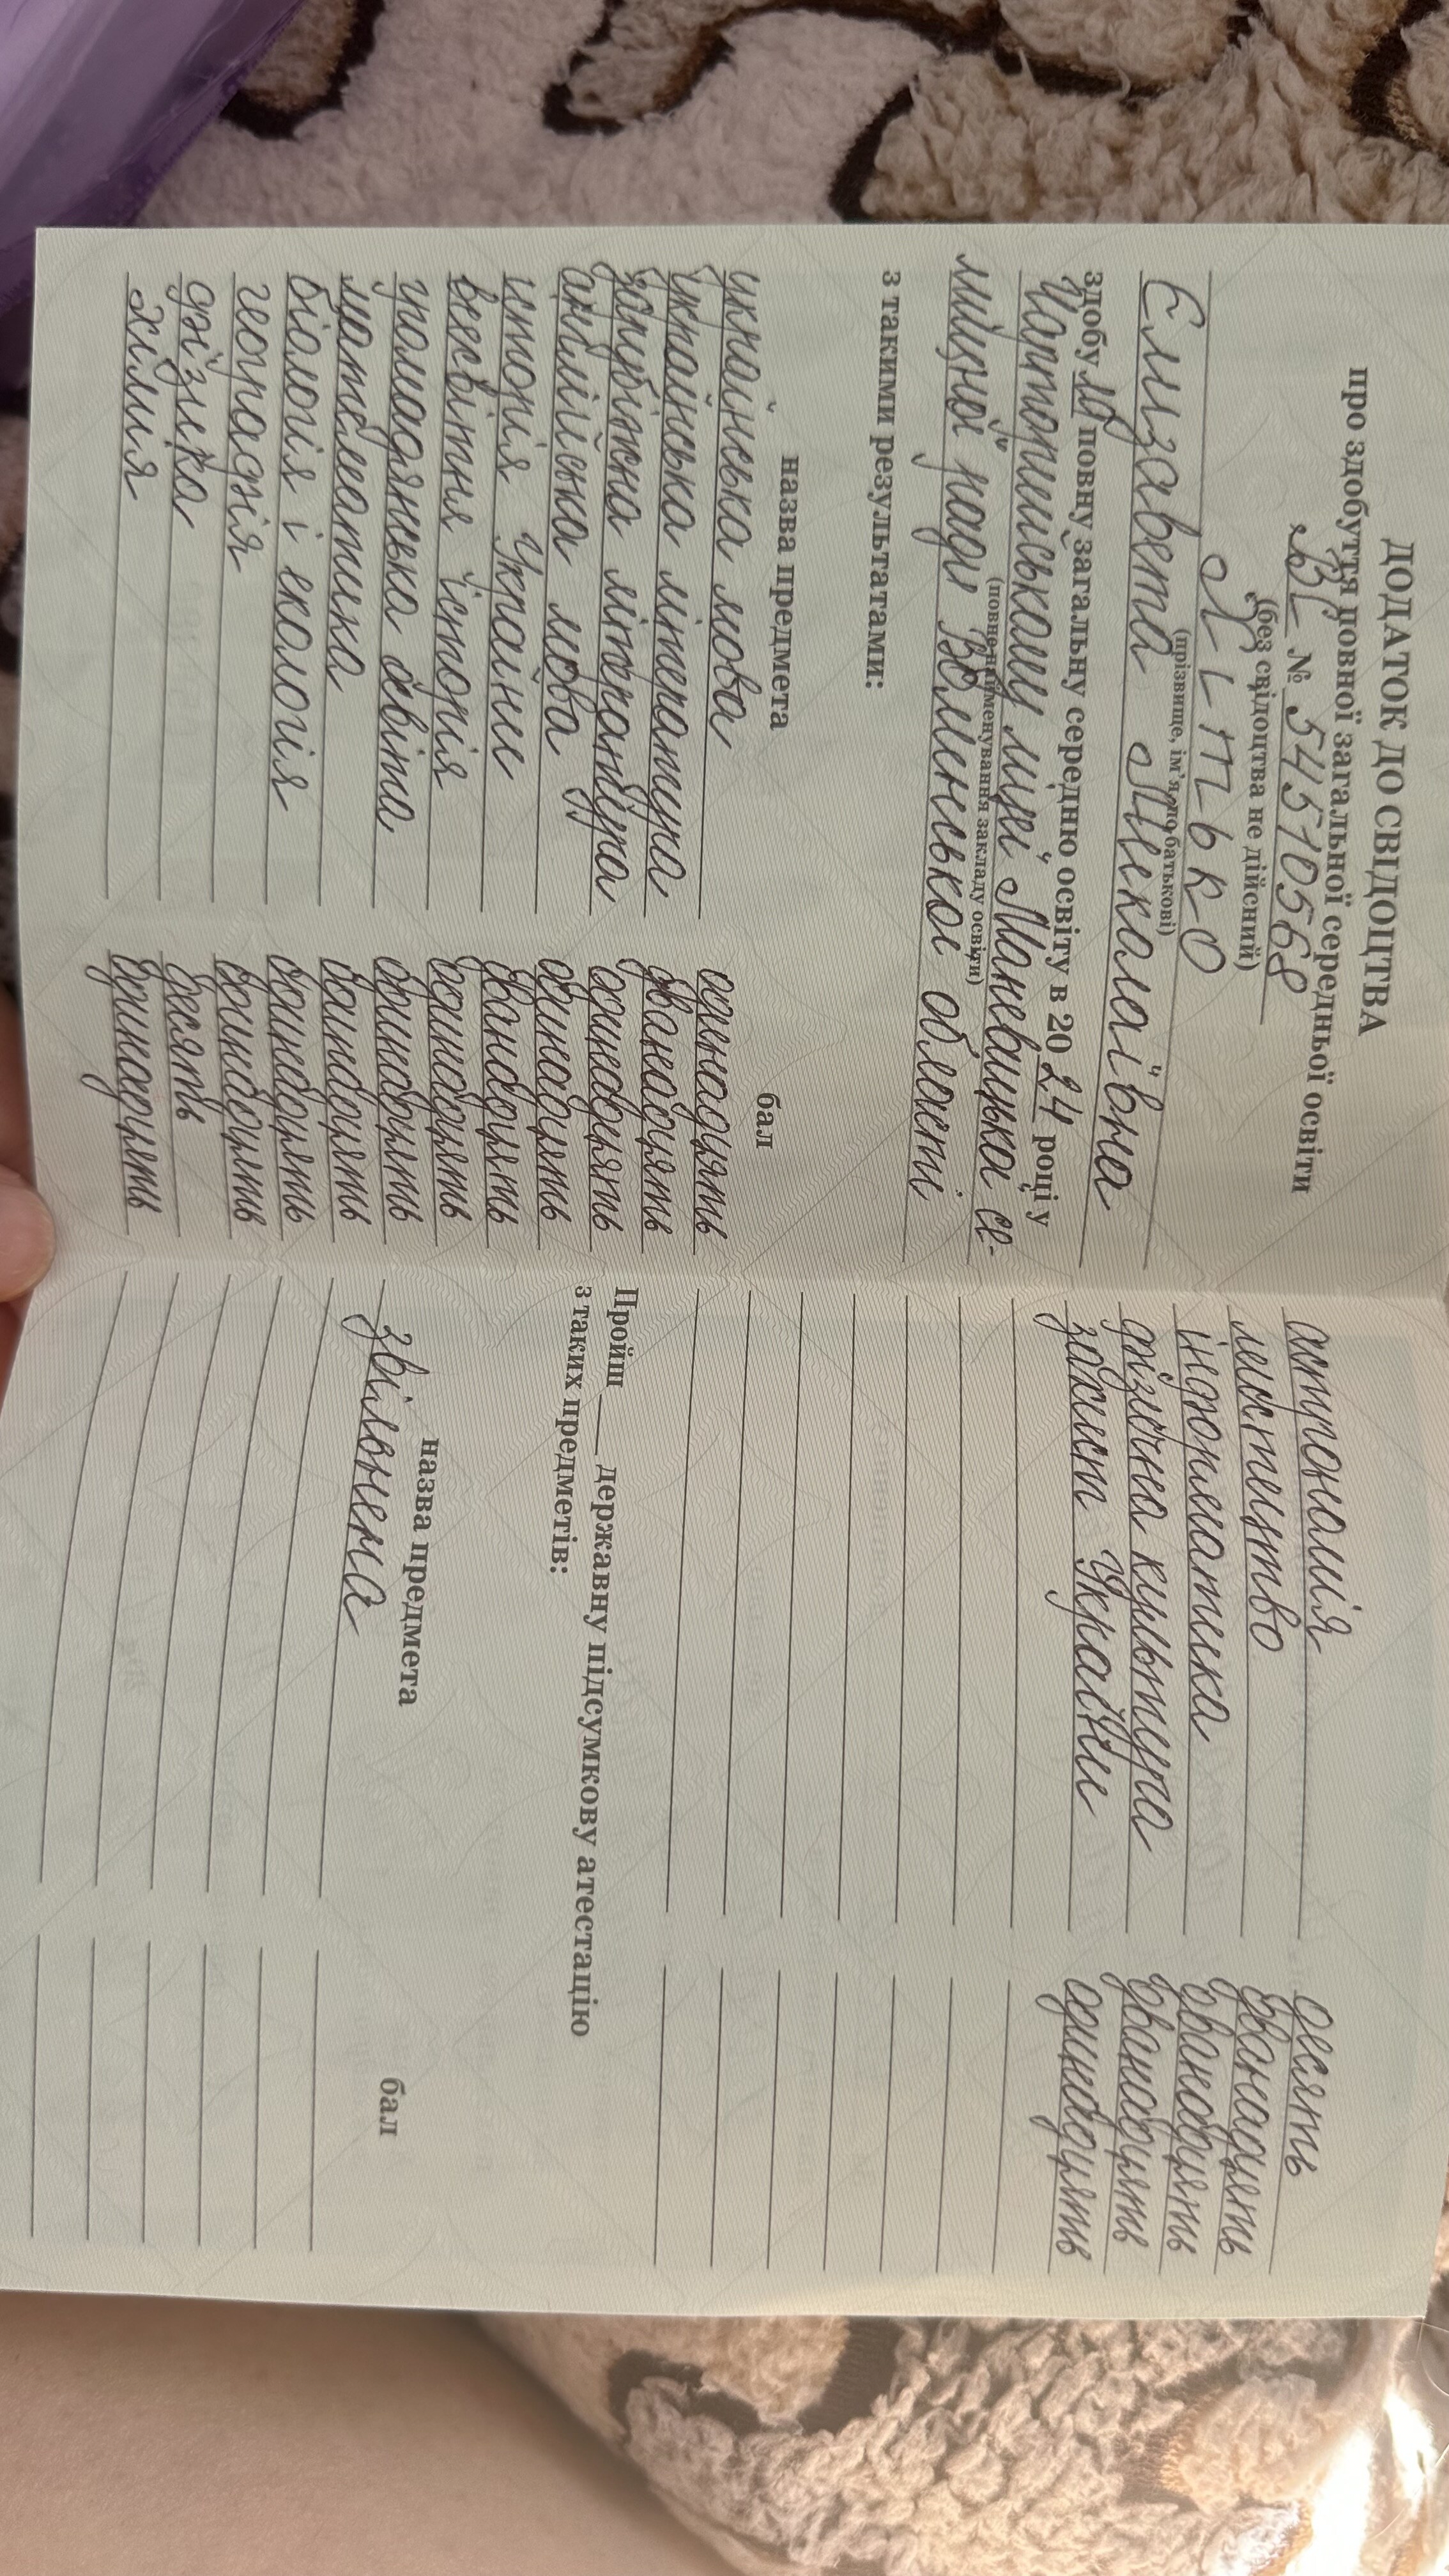 ДОДАТОК ДО СВІДОЦТВА
про здобуття повної загальної середньої освіти
ВL № 54510568
(без свідоцтва не дійсний)
Літько
(прізвище, ім’я, по батькові)
Єлизавета Миколаївна
здобула повну загальну середню освіту в 2024 році у
Чарторийському ліцеї Маневицької се-
(повне найменування закладу освіти)
лищної ради Волинської області
з такими результатами:
назва предмета бал
українська мова одинадцять
українська література дванадцять
зарубіжна література одинадцять
англійська мова одинадцять
історія України дванадцять
всесвітня історія одинадцять
громадянська освіта одинадцять
математика одинадцять
біологія і екологія одинадцять
географія одинадцять
фізика десять
хімія одинадцять
астрономія десять
мистецтво дванадцять
інформатика дванадцять
фізична культура дванадцять
захист України одинадцять
Пройш____ державну підсумкову атестацію
з таких предметів:
назва предмета бал
звільнена